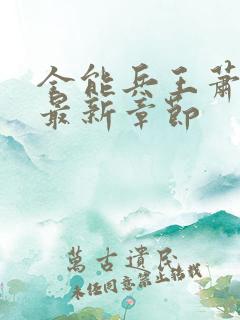 全能兵王萧
最新章節
萬古遺民
未任同意禁止轉載